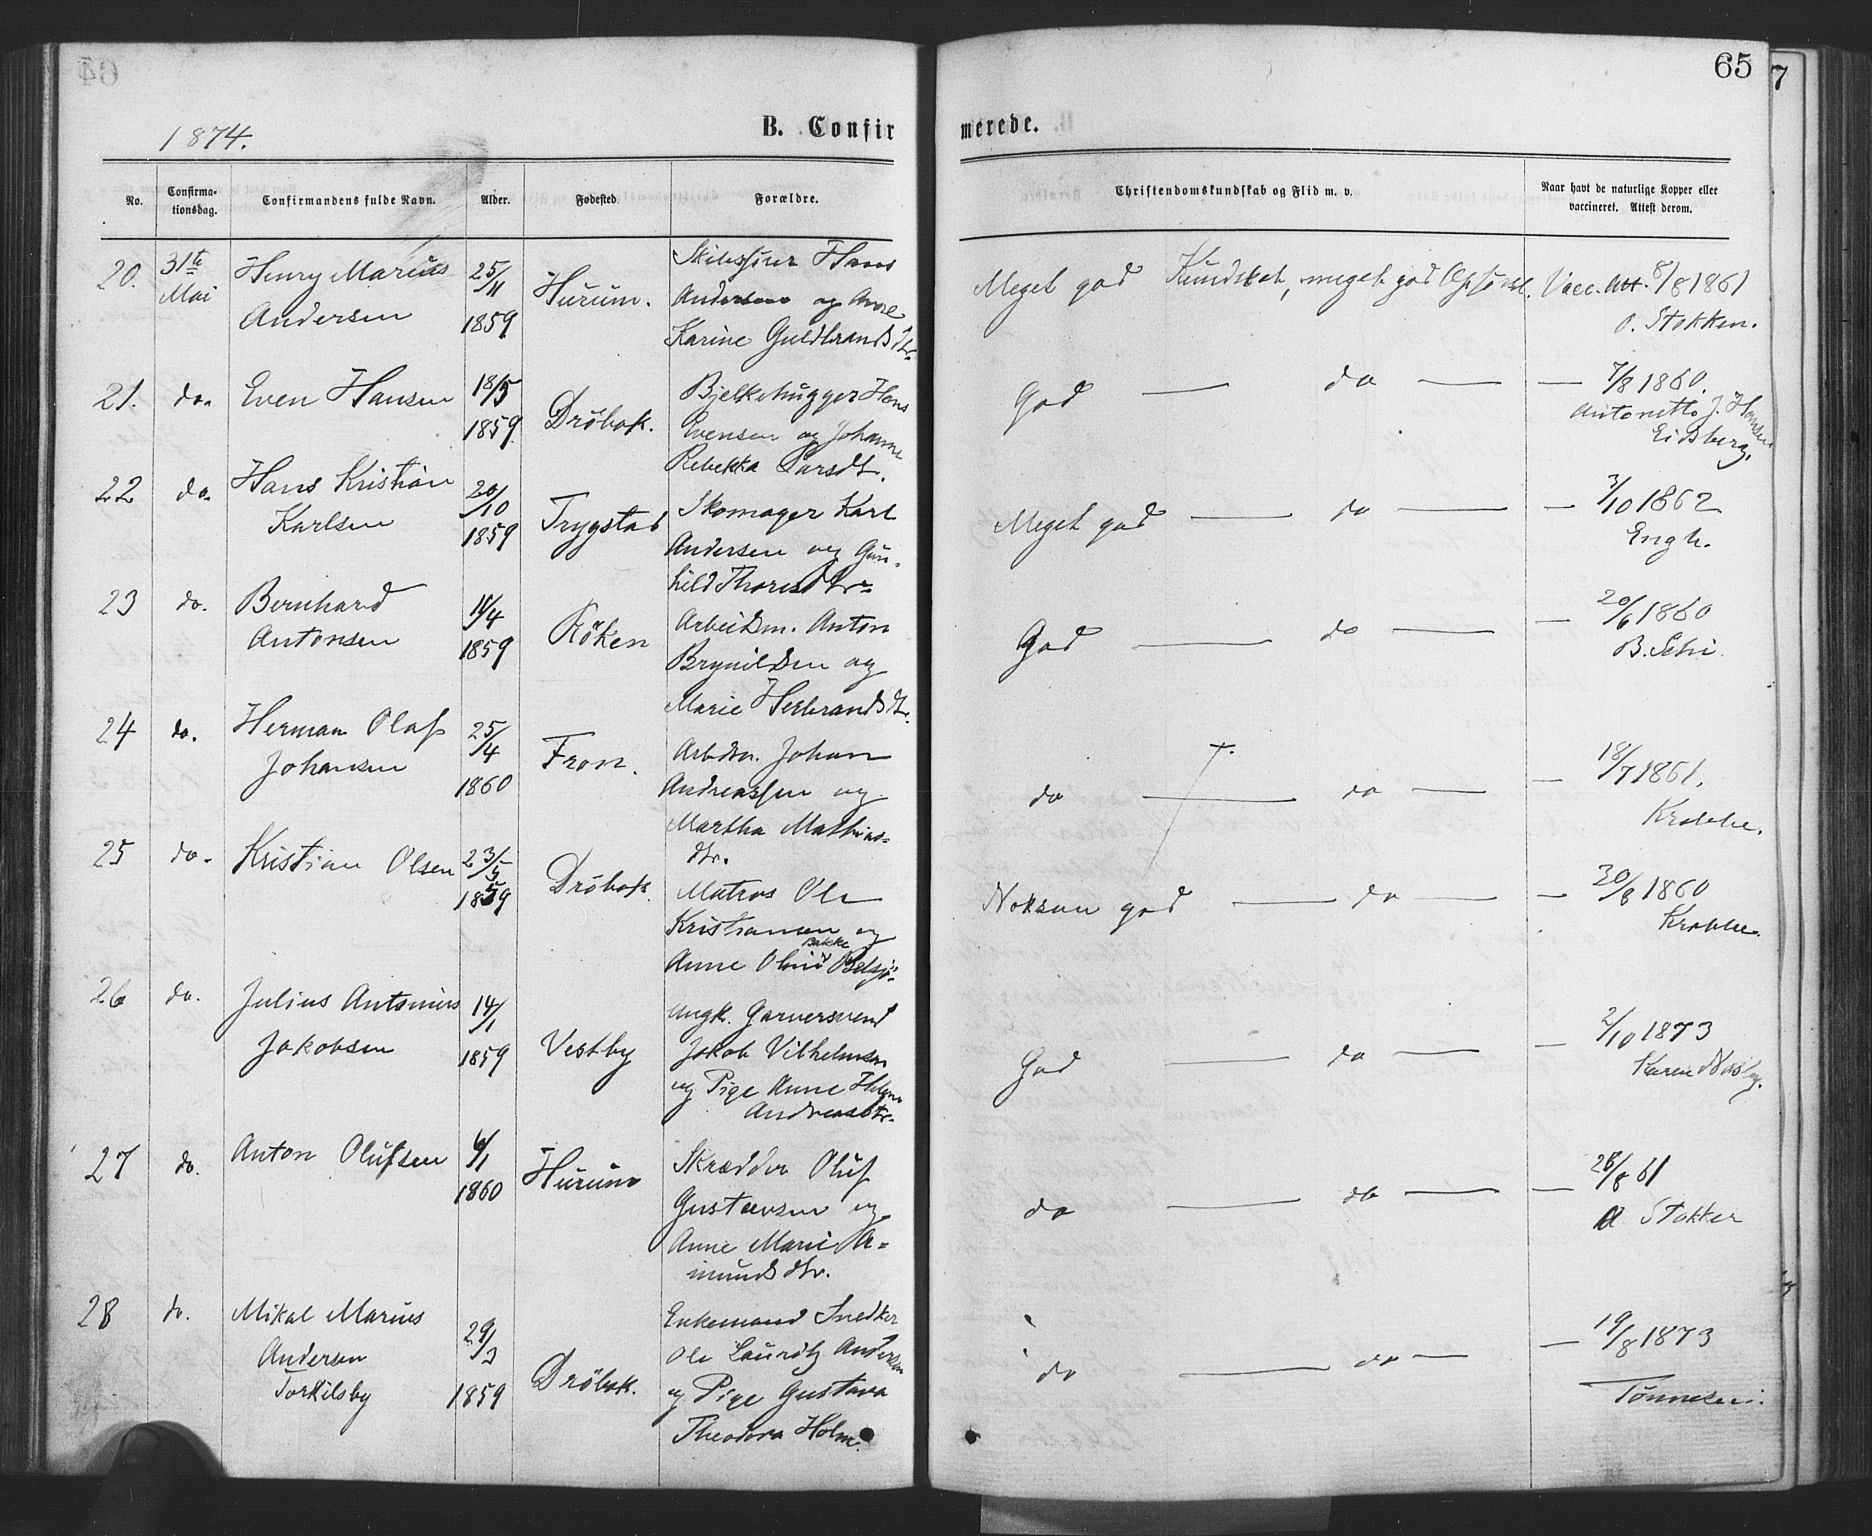 65
7
1874.
B. Confir
merede.
No.
Confirma-
tionsdag.
Confirmandens fulde Navn.
Alder.
Fødested.
Forældre.
Christendomskundskab og Flid m. v.
Naar havt de naturlige Kopper eller
vaccineret. Attest derom.
20.
31te
Mai
Henry Marius
Andersen
25/11
1859
Hurum.
Hans
Andersen og Anne
Karine Guldbrandsdtr.
Meget god Kundskab, meget god Opførsel.
Vacc. Att. 8/8 1861
O. Stokken.
21.
do.
Even Hansen
18/5
1859.
Dröbak.
Bjelkehugger Hans
Evensen og Johanne
Rebekka Larsdt.
God — do —
— 7/8 1860.
Antonette J. Hansen
Eidsberg.
22
do.
Hans Kristian
Karlsen
20/10
1859
Trygstad
Skomager Karl
Andersen og Gun-
hild Thoresdtr
Meget god — do —
— 3/10 1862
Engh.
23
do.
Bernhard
Antonsen
11/4
1859
Röken
Arbeidsm. Anton
Brynildsen og
Marie Herbrandsdtr.
God — do —
— 20/6 1860
B.
24
do.
Herman Olaf
Johansen
25/4
1860
Fron.
Arbdsm. Johan
Andreassen og
Martha Mathias-
dtr.
+.
do — do —
— 18/7 1861.
Krabbe.
25
do.
Kristian Olsen
23/5
1859
Dröbak.
Matros Ole
Kristiansen og
Bakke
Anne
Noksaa god — do —
— 30/8 1860
Krabbe.
26
do.
Julius Antonius
Jakobsen
14/1
1859
Vestby
ungk. Garversvend
Jakob Vilhelmsen
og Pige Anne Helene
Andreasdtr.
God — do —
— 2/10 1873
Karen
27
do.
Anton Olufsen
6/1
1860
Hurum
Skrædder Oluf
Gustavsen og
Anne Marie A-
mundsdtr.
do — do —
— 26/8 61
O. Stokker
28
do.
Mikal Marius
Andersen
Torkilsby
29/3
1859
Dröbak.
Enkemand Snedker
Ole Lauritz Andersen
og Pige Gustava
Theodora Holm.
do — do —
— 19/8 1873
Tönnesen.